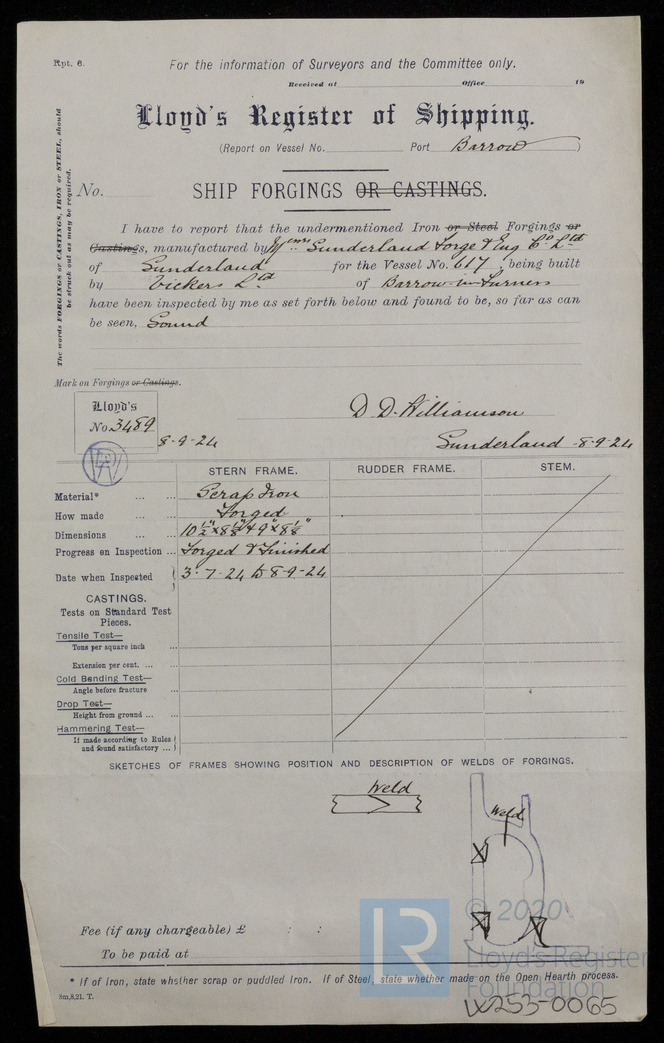 Rpt. 6.
For the information of Surveyors and the Committee only.
Received at Office 19
Lloyd's Register of Shipping.
(Report on Vessel No. Port Barrow )
The words FORGINGS or CASTINGS, IRON or STEEL, should
be struck out as may be required.
No.
SHIP FORGINGS OR CASTINGS.
I have to report that the undermentioned Iron or Steel Forgings or
Castings, manufactured by Messrs Sunderland Forge & Eng Co Ltd
of Sunderland for the Vessel No. 617, being built
by Vickers Ld of Barrow-in-Furness
have been inspected by me as set forth below and found to be, so far as can
be seen, Sound
Mark on Forgings or Castings.
Lloyd's
No. 3489
8-9-24
D. D. Williamson
Sunderland 8-9-24
STERN FRAME. RUDDER FRAME. STEM.
Material* ... ... Scrap Iron
How made ... ... Forged
Dimensions ... ... 10½" x 8⅛" & 9" x 8⅛"
Progress on Inspection ... Forged & Finished
Date when Inspected 3-7-24 to 8-9-24
CASTINGS.
Tests on Standard Test
Pieces.
Tensile Test—
Tons per square inch ...
Extension per cent. ... ...
Cold Bending Test—
Angle before fracture ...
Drop Test—
Height from ground ... ...
Hammering Test—
If made according to Rules
and found satisfactory ...
SKETCHES OF FRAMES SHOWING POSITION AND DESCRIPTION OF WELDS OF FORGINGS.
Weld
Weld
Fee (if any chargeable) £ : :
To be paid at
* If of Iron, state whether scrap or puddled Iron. If of Steel, state whether made on the Open Hearth process.
8m,8,21. T.
LR
© 2020
Lloyd's Register
Foundation
W253-0065